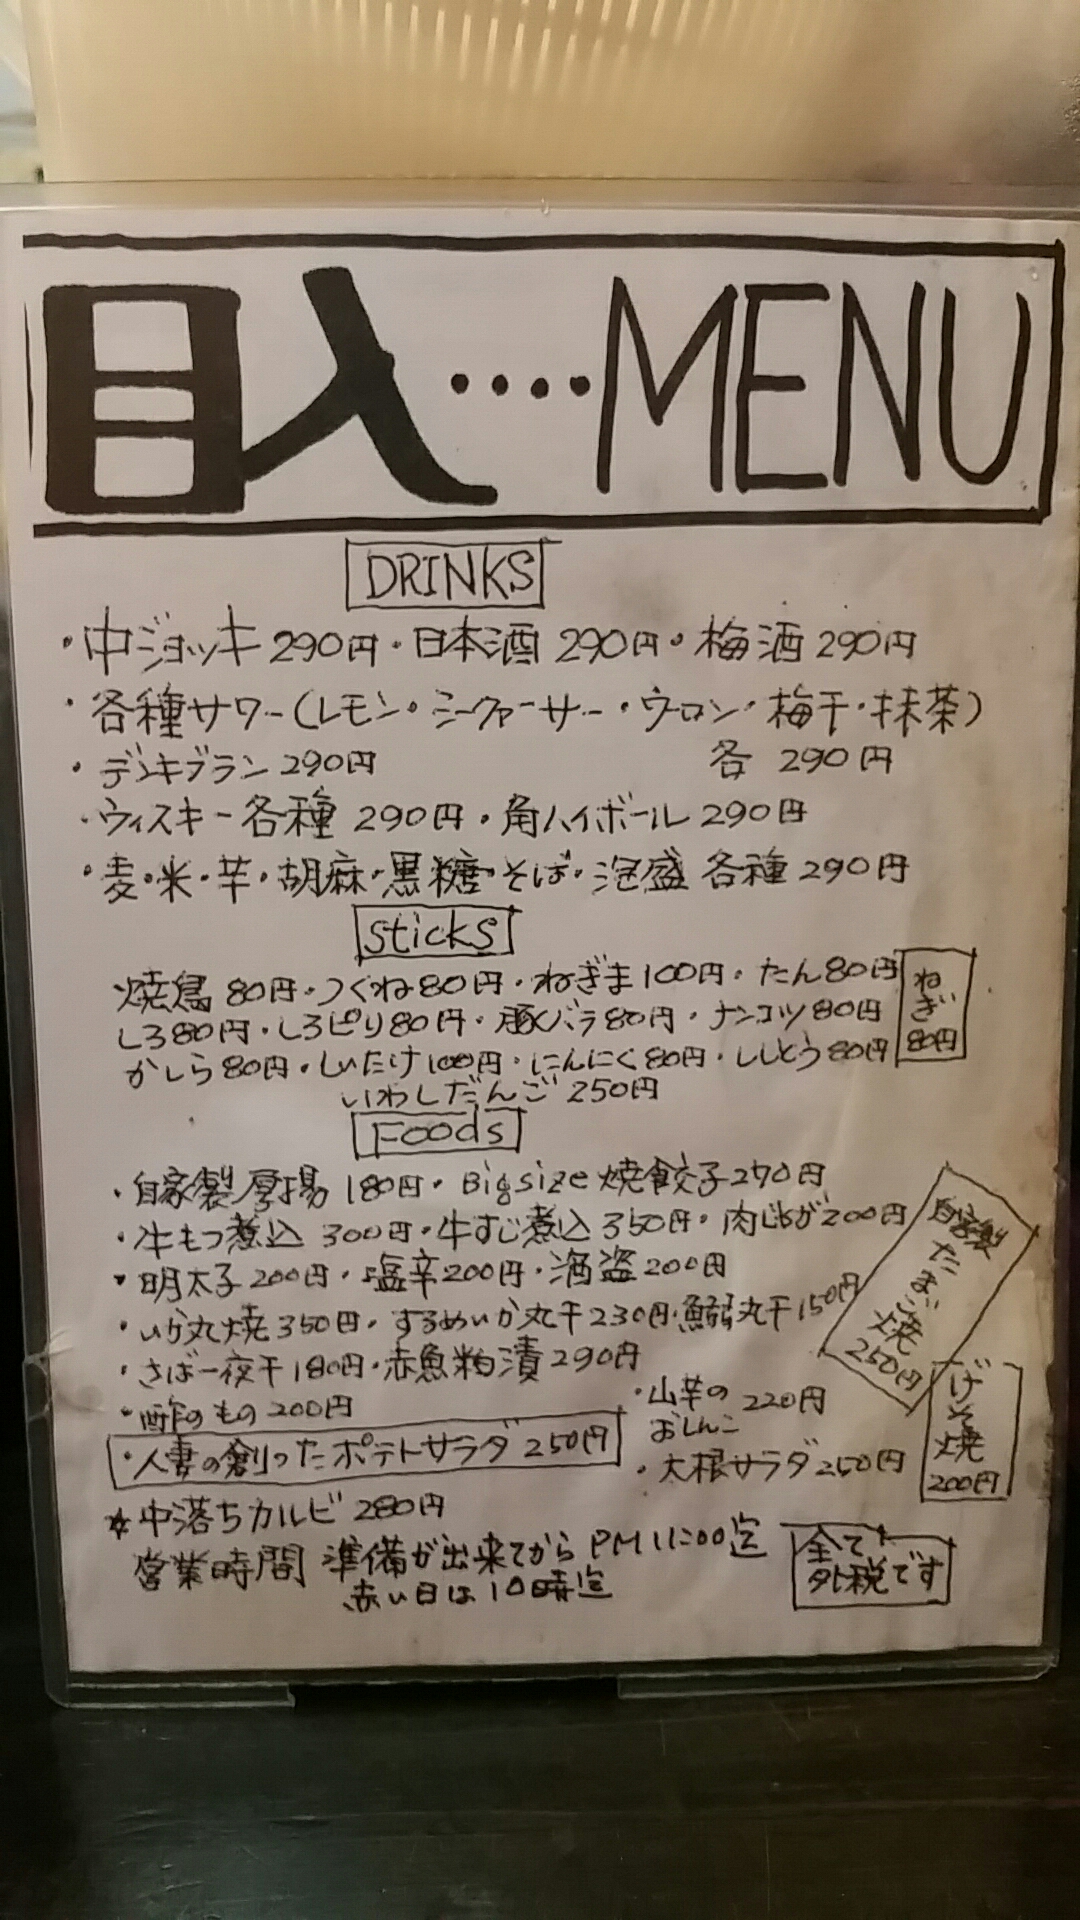 目入‥‥MENU
DRINKS
・中ジョッキ 290円・日本酒 290円・梅酒 290円
・各種サワー(レモン・シークァーサー・ウーロン・梅干・抹茶)
・デンキブラン 290円 各 290円
・ウィスキー各種 290円・角ハイボール 290円
・麦・米・芋・胡麻・黒糖・そば・泡盛 各種 290円
Sticks
焼鳥 80円・つくね 80円・ねぎま 100円・たん 80円
しろ 80円・しろピリ 80円・豚バラ 80円・ナンコツ 80円
かしら 80円・しいたけ 100円・にんにく 80円・ししとう 80円
いわしだんご 250円
ねぎ
80円
Foods
・自家製厚揚 180円・Bigsize 焼餃子 270円
・牛もつ煮込 300円・牛すじ煮込 350円・肉じゃが 200円
・明太子 200円・塩辛 200円・酒盗 200円
・いか丸焼 350円・するめいか丸干 230円・鰯丸干 150円
・さば一夜干 180円・赤魚粕漬 290円
・酢のもの 200円
・人妻の創ったポテトサラダ 250円
・山芋の
おしんこ 220円
・大根サラダ 250円
自家製
たまご焼
250円
げそ焼
200円
☆中落ちカルビ 280円
営業時間 準備が出来てから PM 11:00迄
赤い日は 10時迄
全て
外税です